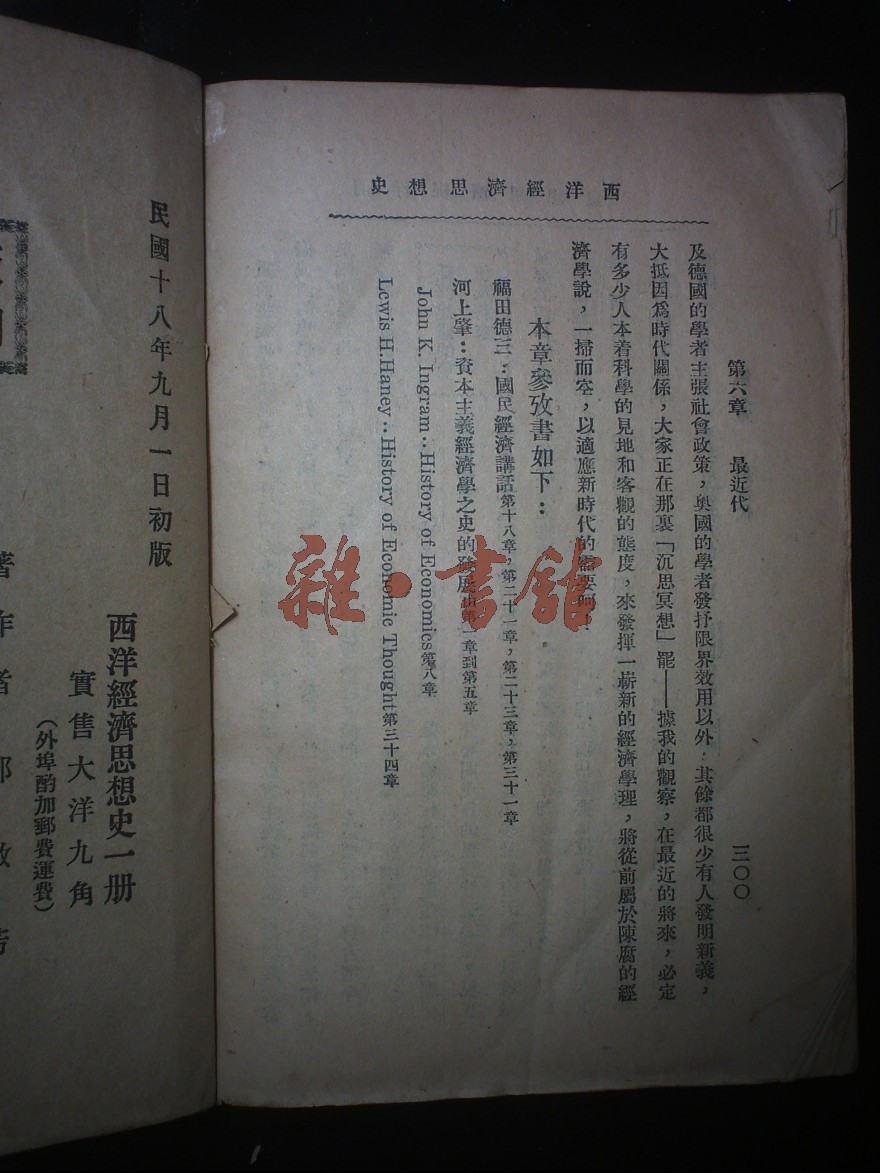 西洋經濟思想史
第六章 最近代 三〇〇
及德國的學者主張社會政策，奧國的學者發抒限界效用以外：其餘都很少有人發明新義，
大抵因爲時代關係，大家正在那裏「沉思冥想」罷——據我的觀察，在最近的將來，必定
有多少人本着科學的見地和客觀的態度，來發揮一嶄新的經濟學理，將從前屬於陳腐的經
濟學說，一掃而空，以適應新時代的需要
本章參攷書如下：
福田德三：國民經濟講話第十八章，第二十一章，第二十三章，第三十一章
河上肇：資本主義經濟學之史的發展由第一章到第五章
John K. Ingram：History of Economics第八章
Lewis H.Haney：History of Economic Thought第三十四章
雜·書館
民國十八年九月一日初版
西洋經濟思想史一册
實售大洋九角
（外埠酌加郵費運費）
著作者